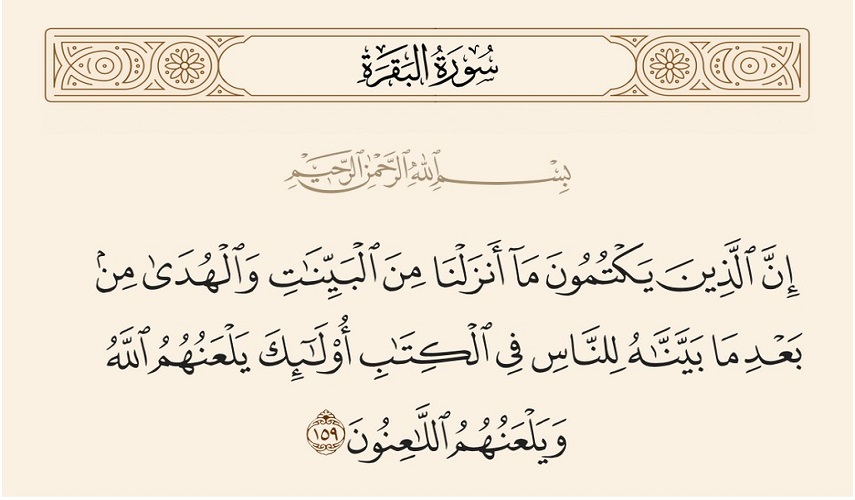 سُورَةُ البَقَرَةِ
بِسْمِ ٱللَّهِ ٱلرَّحْمَٰنِ ٱلرَّحِيمِ
إِنَّ ٱلَّذِينَ يَكْتُمُونَ مَآ أَنزَلْنَا مِنَ ٱلْبَيِّنَٰتِ وَٱلْهُدَىٰ مِنۢ
بَعْدِ مَا بَيَّنَّٰهُ لِلنَّاسِ فِى ٱلْكِتَٰبِ أُو۟لَٰٓئِكَ يَلْعَنُهُمُ ٱللَّهُ
وَيَلْعَنُهُمُ ٱللَّٰعِنُونَ ١٥٩